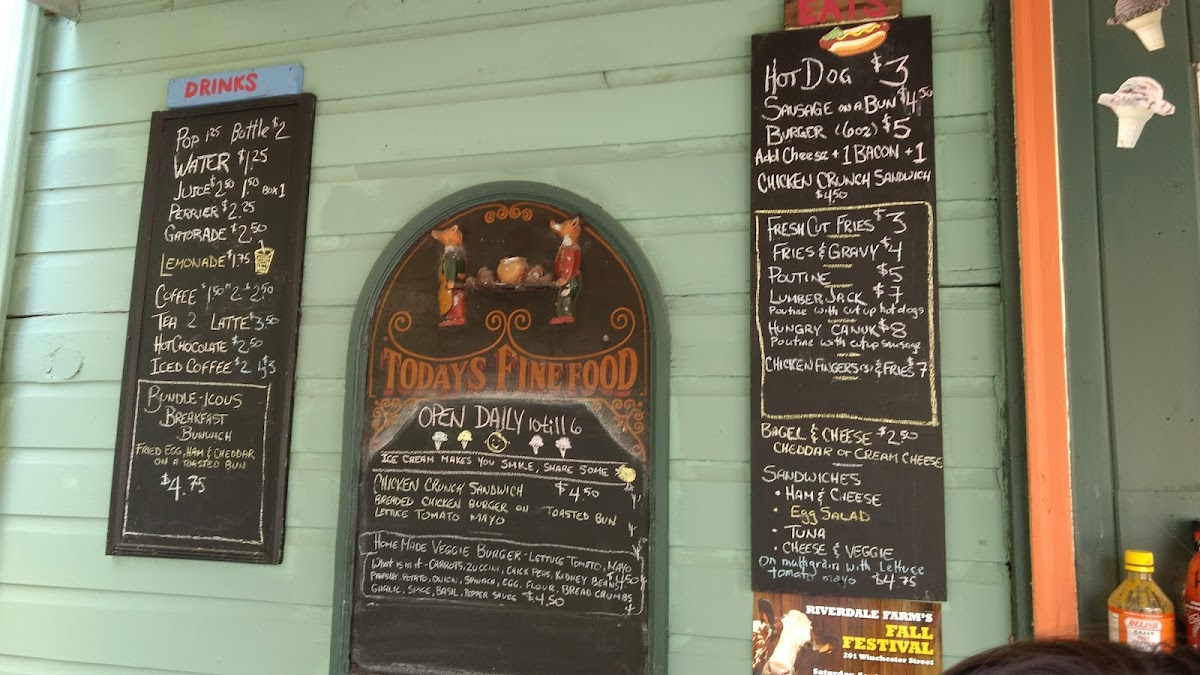 DRINKS
POP 1.25 Bottle $2
WATER $1.25
JUICE $2.50 1.50 BOX 1
PERRIER $2.25
GATORADE $2.50
LEMONADE $1.75
COFFEE $1.50 2 $2.50
TEA 2 LATTE $3.50
HOT CHOCOLATE $2.50
ICED COFFEE $2 $3
BUNDLE-ICOUS
BREAKFAST
BUNWICH
FRIED EGG, HAM & CHEDDAR
ON A TOASTED BUN
$4.75
TODAYS FINE FOOD
OPEN DAILY 10 till 6
ICE CREAM MAKES YOU SMILE, SHARE SOME
CHICKEN CRUNCH SANDWICH $4.50
BREADED CHICKEN BURGER ON TOASTED BUN
LETTUCE TOMATO MAYO
HOME MADE VEGGIE BURGER - LETTUCE TOMATO, MAYO
WHAT IS IN IT - CARROTS, ZUCCINI, CHICK PEAS, KIDNEY BEANS
PARSLEY, POTATO, ONION, SPINACH, EGG, FLOUR, BREAD CRUMBS $4.50
GARLIC, SPICE, BASIL, PEPPER SAUCE $4.50
EATS
HOT DOG $3
SAUSAGE ON A BUN $4.50
BURGER (6oz) $5
Add Cheese + 1 BACON + 1
CHICKEN CRUNCH SANDWICH
$4.50
FRESH CUT FRIES $3
FRIES & GRAVY $4
POUTINE $5
LUMBER JACK $7
Poutine with cut up hot dogs
HUNGRY CANUK $8
Poutine with cut up sausage
CHICKEN FINGERS (3) & FRIES $7
BAGEL & CHEESE $2.50
CHEDDAR or CREAM CHEESE
SANDWICHES
• HAM & CHEESE
• Egg SALAD
• TUNA
• CHEESE & VEGGIE
On multigrain with lettuce
tomato mayo $4.75
RIVERDALE FARM'S
FALL
FESTIVAL
201 Winchester Street
DELISH